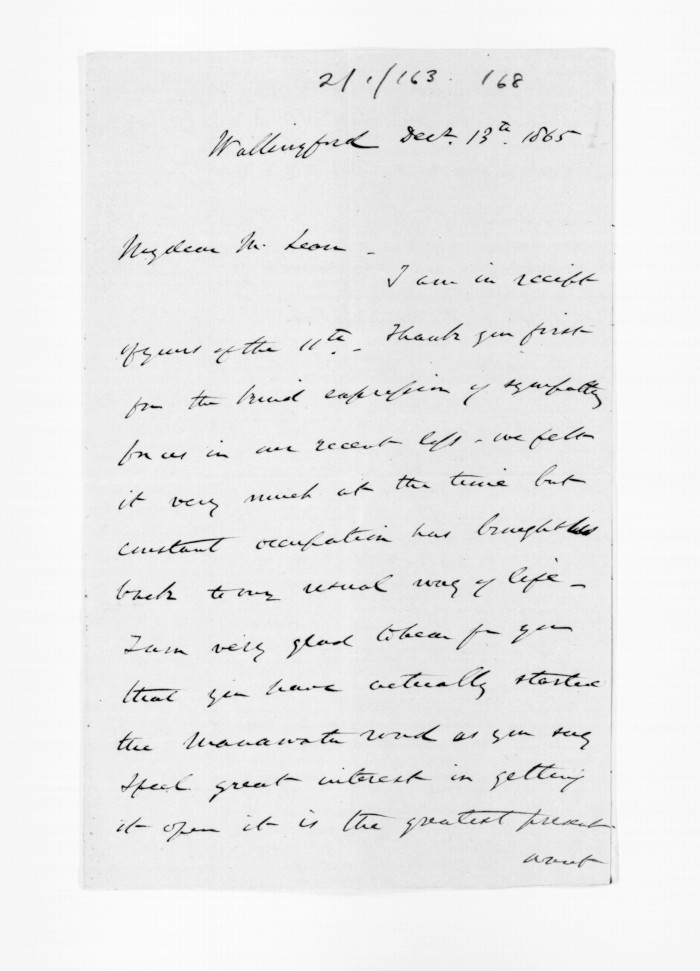 2/1/163. 168
Wallingford Decr. 13th. 1865
My dear Mc Lean -
I am in receipt
of yours of the 11th. - Thank you first
for the kind expression of sympathy
for us in our recent loss - we felt
it very much at the time but
constant occupation has brought us
back to our usual way of life -
I am very glad to hear fm you
that you have actually started
the Manawatu road as you say
I feel great interest in getting
it open it is the greatest present
want